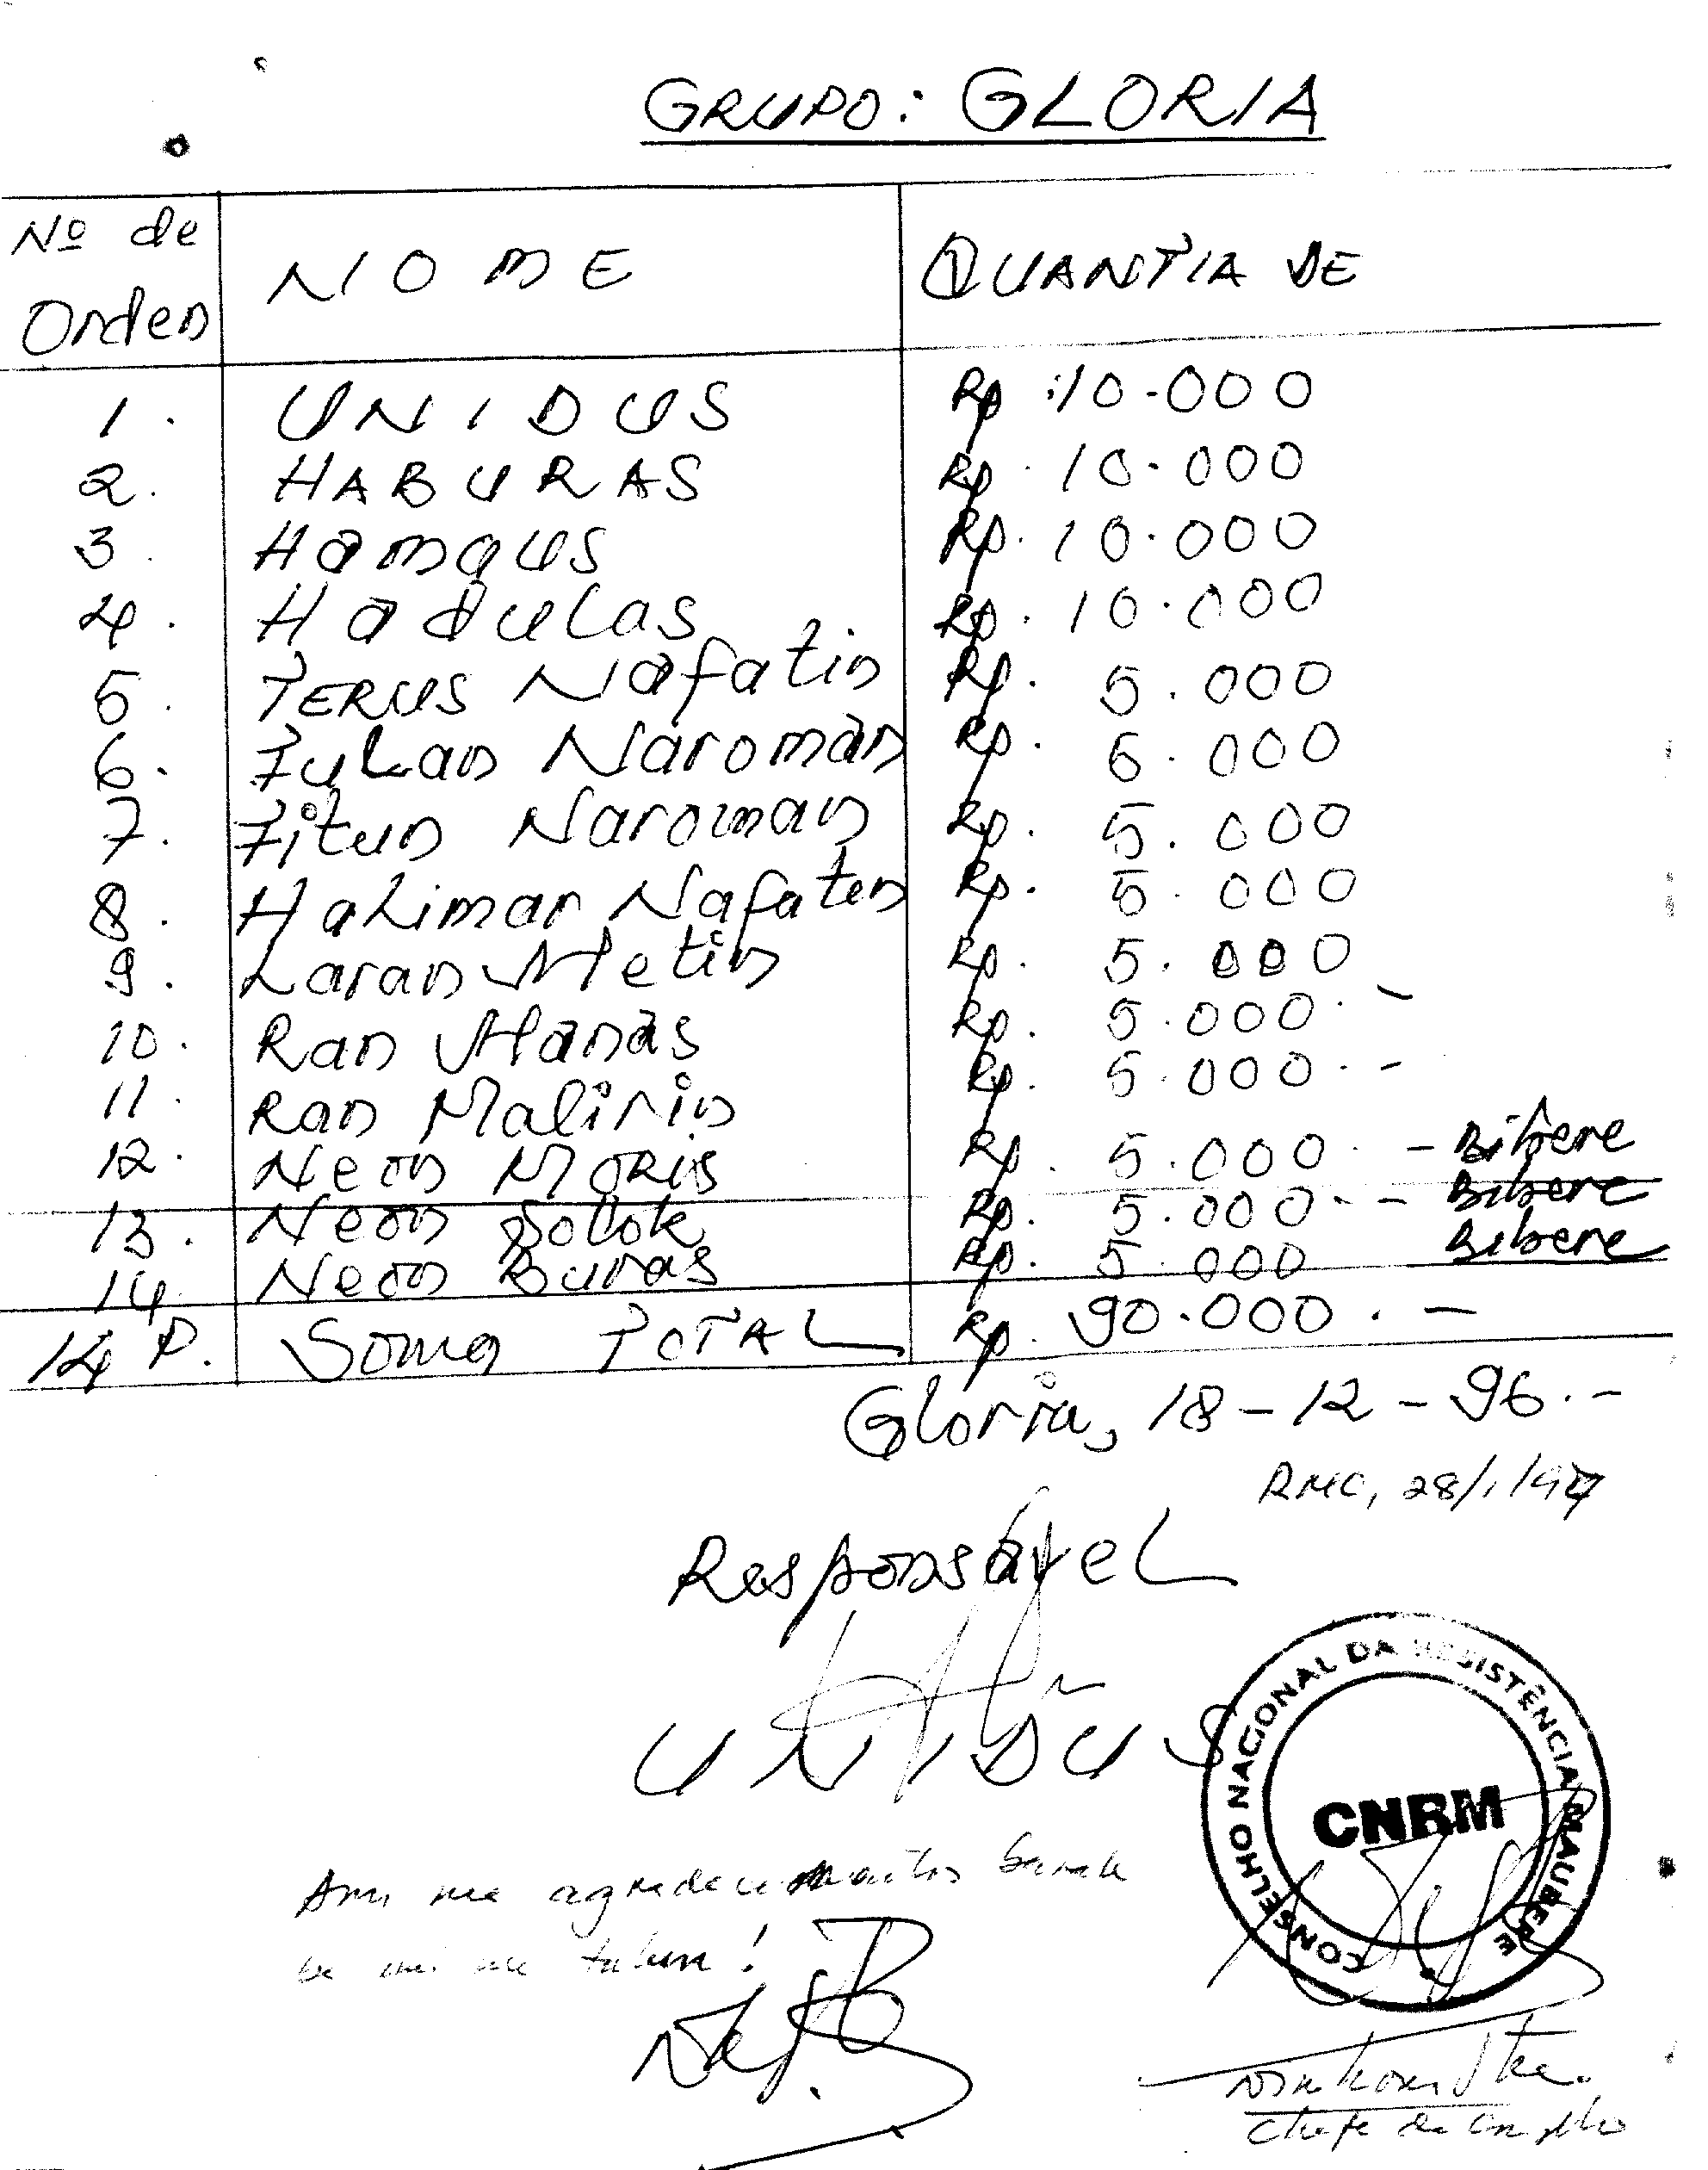 GRUPO: GLORIA
Nº de Orden NOME QUANTIA DE
1. UNIDUS Rp. 10.000
2. HABURAS Rp. 10.000
3. Hamaus Rp. 10.000
4. Hadulas Rp. 10.000
5. TERUS Nafatin Rp. 5.000
6. Fulan Naroman Rp. 5.000
7. Fitun Naroman Rp. 5.000
8. Hakimar Nafaten Rp. 5.000
9. Laran Metin Rp. 5.000
10. Ran Manas Rp. 5.000.-
11. Ran Malirin Rp. 5.000.-
12. Neon MORIS Rp. 5.000.- Bibere
13. Neon Rp. 5.000.- Bibere
14. Neon Buras Rp. 5.000 Bibere
14 P. Soma TOTAL Rp. 90.000.-
Gloria, 18-12-96.-
RMC, 28/1/97
Responsável
UNIDUS
CONSELHO NACIONAL DA RESISTÊNCIA MAUBERE
CNRM
Chefe